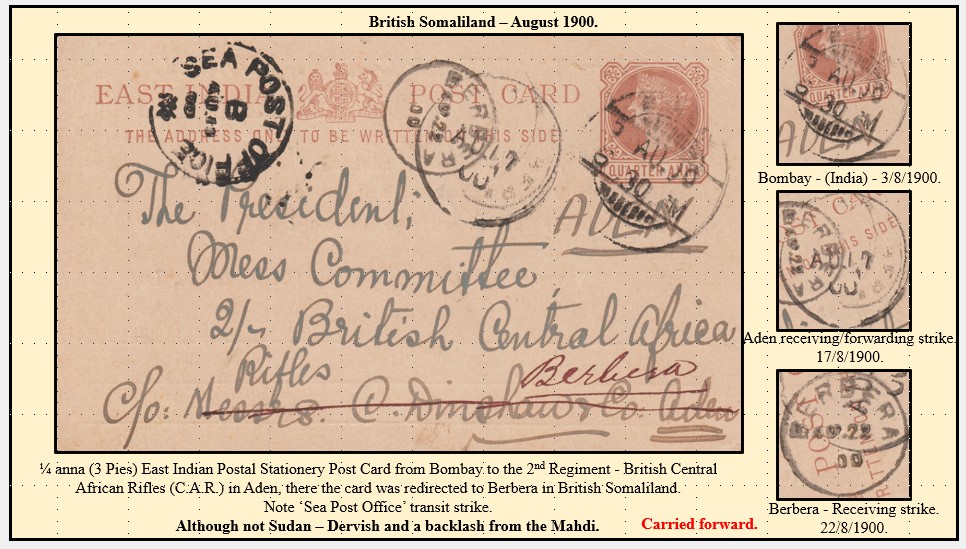 British Somaliland – August 1900.
SEA POST OFFICE
B
EAST INDIA POST CARD
THE ADDRESS ONLY TO BE WRITTEN ON THIS SIDE
BERBERA
AU 22
00
AU 17
00
AU
9-30 AM
QUARTER ANNA
ADEN
The President,
Mess Committee,
2/- British Central Africa
Rifles
Berbera
c/o: Messrs. C. Dinshaw & Co. Aden
QUARTER ANNA
Bombay - (India) - 3/8/1900.
AU 17
00
Aden receiving/forwarding strike.
17/8/1900.
BERBERA
AU 22
00
Berbera - Receiving strike.
22/8/1900.
¼ anna (3 Pies) East Indian Postal Stationery Post Card from Bombay to the 2nd Regiment - British Central
African Rifles (C.A.R.) in Aden, there the card was redirected to Berbera in British Somaliland.
Note ‘Sea Post Office’ transit strike.
Although not Sudan – Dervish and a backlash from the Mahdi.
Carried forward.